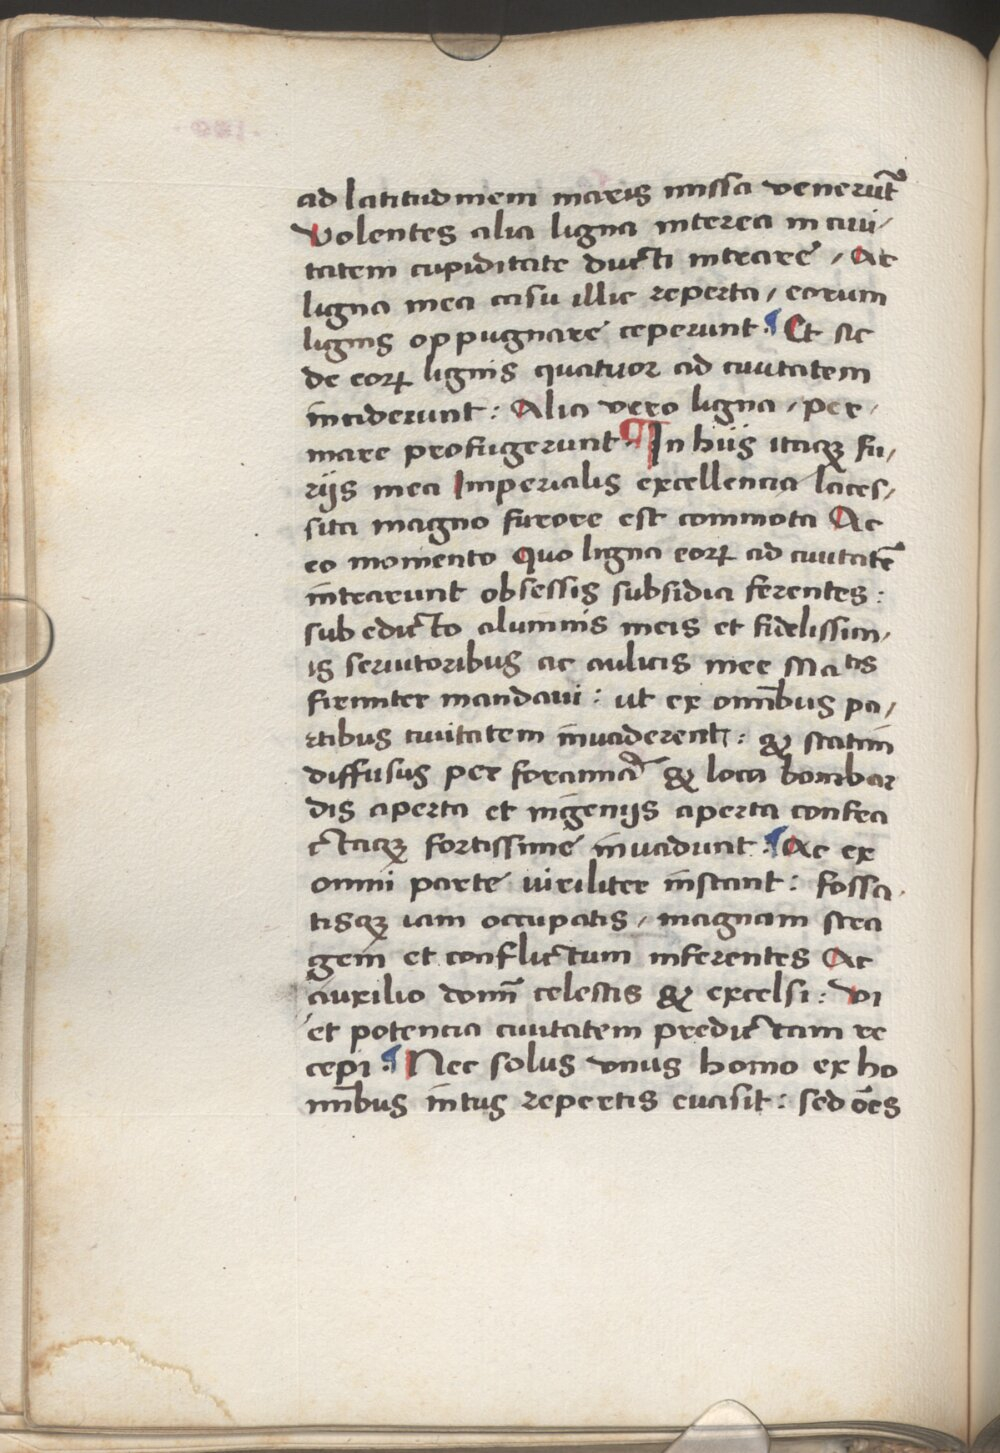 ad latitudinem maris missa venerūt
Volentes alia ligna interea in ciui/
tatem cupiditate ducti intrare / Ac
ligna mea casu illic reperta / eorum
lignis oppugnare ceperunt. ¶ Et sic
de eorꝝ lignis quatuor ad ciuitatem
inciderunt : Alia vero ligna / per /
mare profugerunt. ¶ In hiis itaqꝫ fu/
riis mea Imperialis excellencia laces/
sita magno furore est commota Ac
eo momento Quo ligna eorꝝ ad ciuitatē
intrarunt obsessis subsidia ferentes :
sub edicto alumnis meis et fidelissim/
is seruitoribus ac aulicis mee Maᵗⁱˢ
firmiter mandaui : ut ex omībus pa/
rtibus ciuitatem inuaderent : & statim
diffusus per foramina & loca bombar
dis aperta et ingenijs aperta confea
ctaqꝫ fortissime inuadunt. ¶ Ac ex
omni parte uiriliter instant : fossa.
tisqꝫ iam occupatis / magnam stra
gem et conflictum inferentes Ac
auxilio domī celestis & excelsi : Vi
et potencia ciuitatem predictam re
cepi. ¶ Nec solus vnus homo ex ho
mībus intus repertis euasit : sed oēs